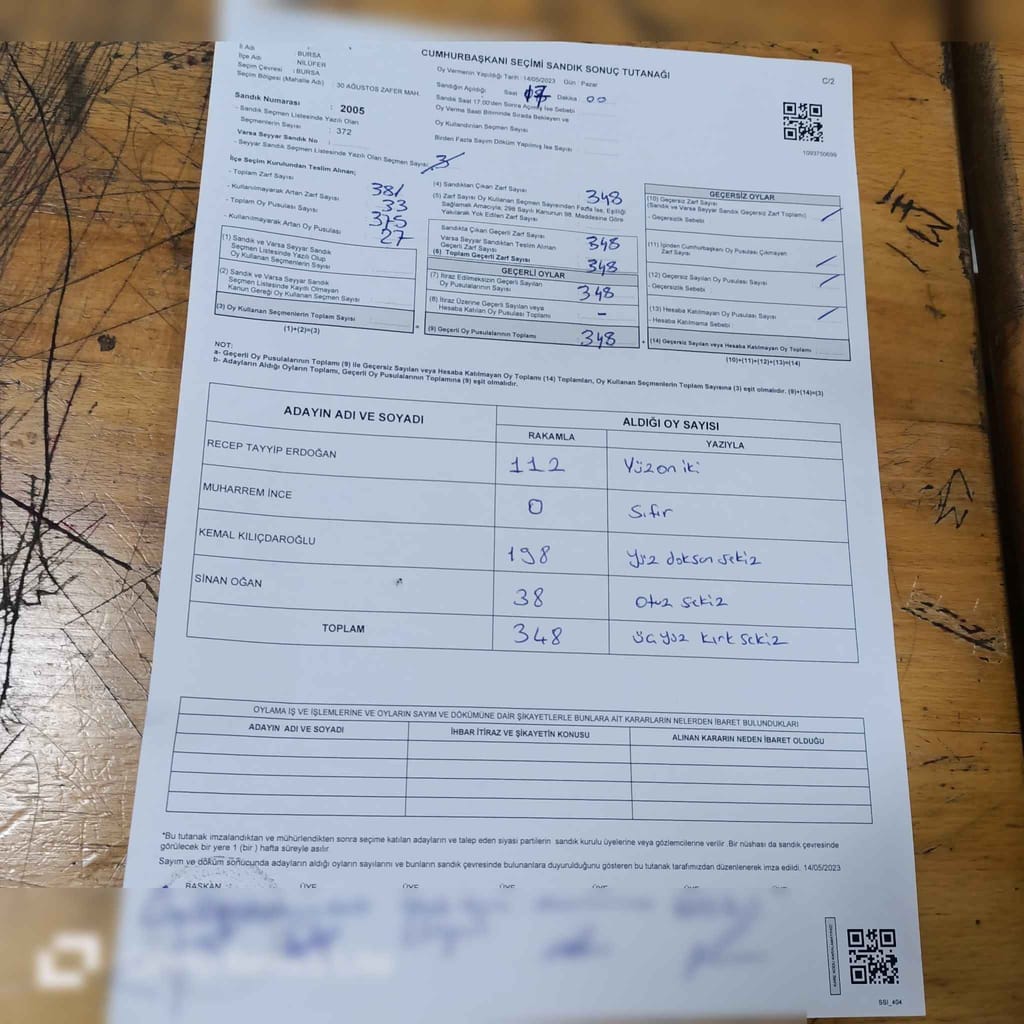 CUMHURBAŞKANI SEÇİMİ SANDIK SONUÇ TUTANAĞI
C/2
İl Adı : BURSA
İlçe Adı : NİLÜFER
Seçim Çevresi : BURSA
Seçim Bölgesi (Mahalle Adı) : 30 AĞUSTOS ZAFER MAH.
Oy Vermenin Yapıldığı Tarih : 14/05/2023 Gün : Pazar
Sandığın Açıldığı Saat 17 Dakika 00
Sandık Saat 17.00'den Sonra Açılmış İse Sebebi
Oy Verme Saati Bitiminde Sırada Bekleyen ve
Oy Kullandırılan Seçmen Sayısı
Birden Fazla Sayım Döküm Yapılmış İse Sayısı
1093750699
Sandık Numarası : 2005
- Sandık Seçmen Listesinde Yazılı Olan
Seçmenlerin Sayısı : 372
Varsa Seyyar Sandık No :
- Seyyar Sandık Seçmen Listesinde Yazılı Olan Seçmen Sayısı
İlçe Seçim Kurulundan Teslim Alınan;
- Toplam Zarf Sayısı 381
- Kullanılmayarak Artan Zarf Sayısı 33
- Toplam Oy Pusulası Sayısı 375
- Kullanılmayarak Artan Oy Pusulası 27
(1) Sandık ve Varsa Seyyar Sandık
Seçmen Listesinde Yazılı Olup
Oy Kullanan Seçmenlerin Sayısı
(2) Sandık ve Varsa Seyyar Sandık
Seçmen Listesinde Kayıtlı Olmayan
Kanun Gereği Oy Kullanan Seçmen Sayısı
(3) Oy Kullanan Seçmenlerin Toplam Sayısı
(1)+(2)=(3)
(4) Sandıktan Çıkan Zarf Sayısı 348
(5) Zarf Sayısı Oy Kullanan Seçmen Sayısından Fazla İse, Eşitliği
Sağlamak Amacıyla; 298 Sayılı Kanunun 98. Maddesine Göre
Yakılarak Yok Edilen Zarf Sayısı
Sandıkta Çıkan Geçerli Zarf Sayısı 348
Varsa Seyyar Sandıktan Teslim Alınan
Geçerli Zarf Sayısı
(6) Toplam Geçerli Zarf Sayısı 348
GEÇERLİ OYLAR
(7) İtiraz Edilmeksizin Geçerli Sayılan
Oy Pusulasının Sayısı 348
(8) İtiraz Üzerine Geçerli Sayılan veya
Hesaba Katılan Oy Pusulası Toplamı -
(9) Geçerli Oy Pusulalarının Toplamı 348
GEÇERSİZ OYLAR
(10) Geçersiz Zarf Sayısı
(Sandık ve Varsa Seyyar Sandık Geçersiz Zarf Toplamı)
- Geçersizlik Sebebi
(11) İçinden Cumhurbaşkanı Oy Pusulası Çıkmayan
Zarf Sayısı
(12) Geçersiz Sayılan Oy Pusulası Sayısı
- Geçersizlik Sebebi
(13) Hesaba Katılmayan Oy Pusulası Sayısı
- Hesaba Katılmama Sebebi
(14) Geçersiz Sayılan veya Hesaba Katılmayan Oy Toplamı
(10)+(11)+(12)+(13)=(14)
NOT:
a- Geçerli Oy Pusulalarının Toplamı (9) ile Geçersiz Sayılan veya Hesaba Katılmayan Oy Toplamı (14) Toplamları, Oy Kullanan Seçmenlerin Toplam Sayısına (3) eşit olmalıdır. (9)+(14)=(3)
b- Adayların Aldığı Oyların Toplamı, Geçerli Oy Pusulalarının Toplamına (9) eşit olmalıdır.
ADAYIN ADI VE SOYADI ALDIĞI OY SAYISI
RAKAMLA YAZIYLA
RECEP TAYYİP ERDOĞAN 112 Yüz on iki
MUHARREM İNCE 0 Sıfır
KEMAL KILIÇDAROĞLU 198 Yüz doksan sekiz
SİNAN OĞAN 38 Otuz sekiz
TOPLAM 348 üç yüz kırk sekiz
OYLAMA İŞ VE İŞLEMLERİNE VE OYLARIN SAYIM VE DÖKÜMÜNE DAİR ŞİKAYETLERLE BUNLARA AİT KARARLARIN NELERDEN İBARET BULUNDUKLARI
ADAYIN ADI VE SOYADI İHBAR İTİRAZ VE ŞİKAYETİN KONUSU ALINAN KARARIN NEDEN İBARET OLDUĞU
*Bu tutanak imzalandıktan ve mühürlendikten sonra seçime katılan adayların ve talep eden siyasi partilerin sandık kurulu üyelerine veya gözlemcilerine verilir. Bir nüshası da sandık çevresinde
görülecek bir yere 1 (bir ) hafta süreyle asılır.
Sayım ve döküm sonucunda adayların aldığı oyların sayılarını ve bunların sandık çevresinde bulunanlara duyurulduğunu gösteren bu tutanak tarafımızdan düzenlenerek imza edildi. 14/05/2023
BAŞKAN ÜYE ÜYE ÜYE ÜYE ÜYE ÜYE
SSI_404